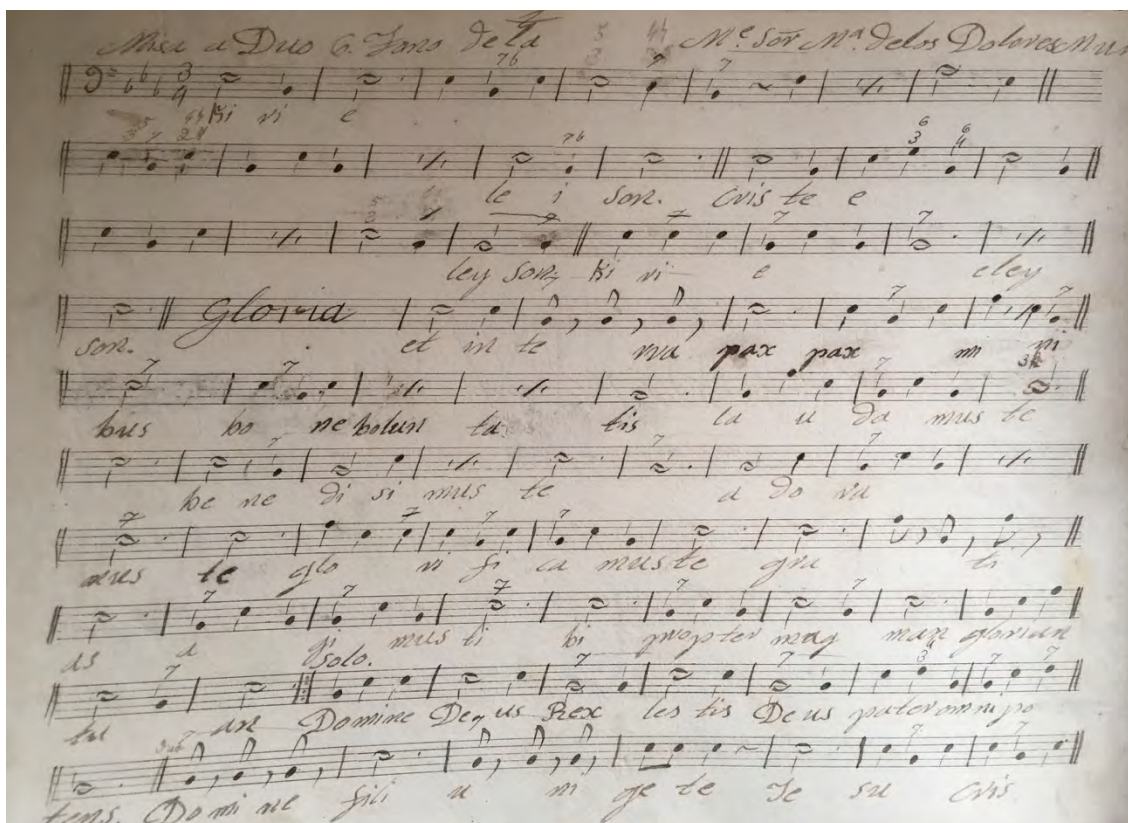 Misa a Duo 6. Tono de la M.e Sor M.a de los Dolores Mun
Ki ri e
le i son. Cris te e
ley son, Ki ri e eley
son. Gloria et in te rra pax pax mi ni
bus bo ne bolun ta tis la u da mus te
be ne di si mus te a do ra
mus te glo ri fi ca mus te gra ti
as a gi mus ti bi propter mag nan glorian
Solo.
tu an Domine De us Rex les tis De us pater omnipo
tens. Do mi ne fili u ni ge te Je su Cris